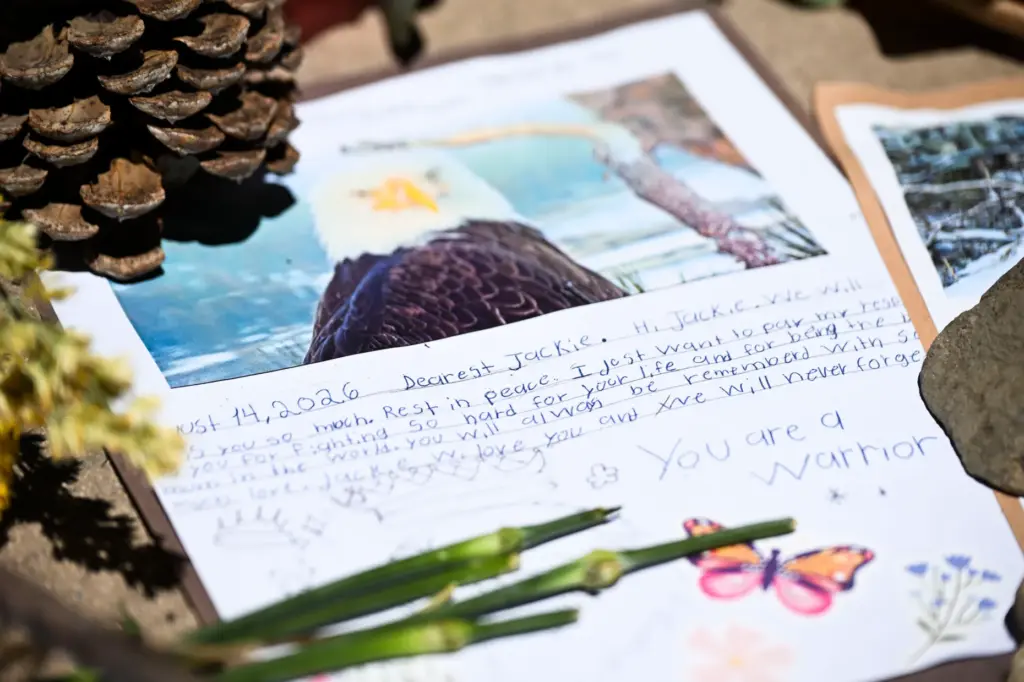 ust 14, 2026 Dearest Jackie. Hi, Jackie. We will
s you so much. Rest in peace. I Just want to pay my resp
you for fighting so hard for your life and for being the
in the world. You will always be rememberd with s
love, Jackie, we love you and we will never forge
You are a
Warrior